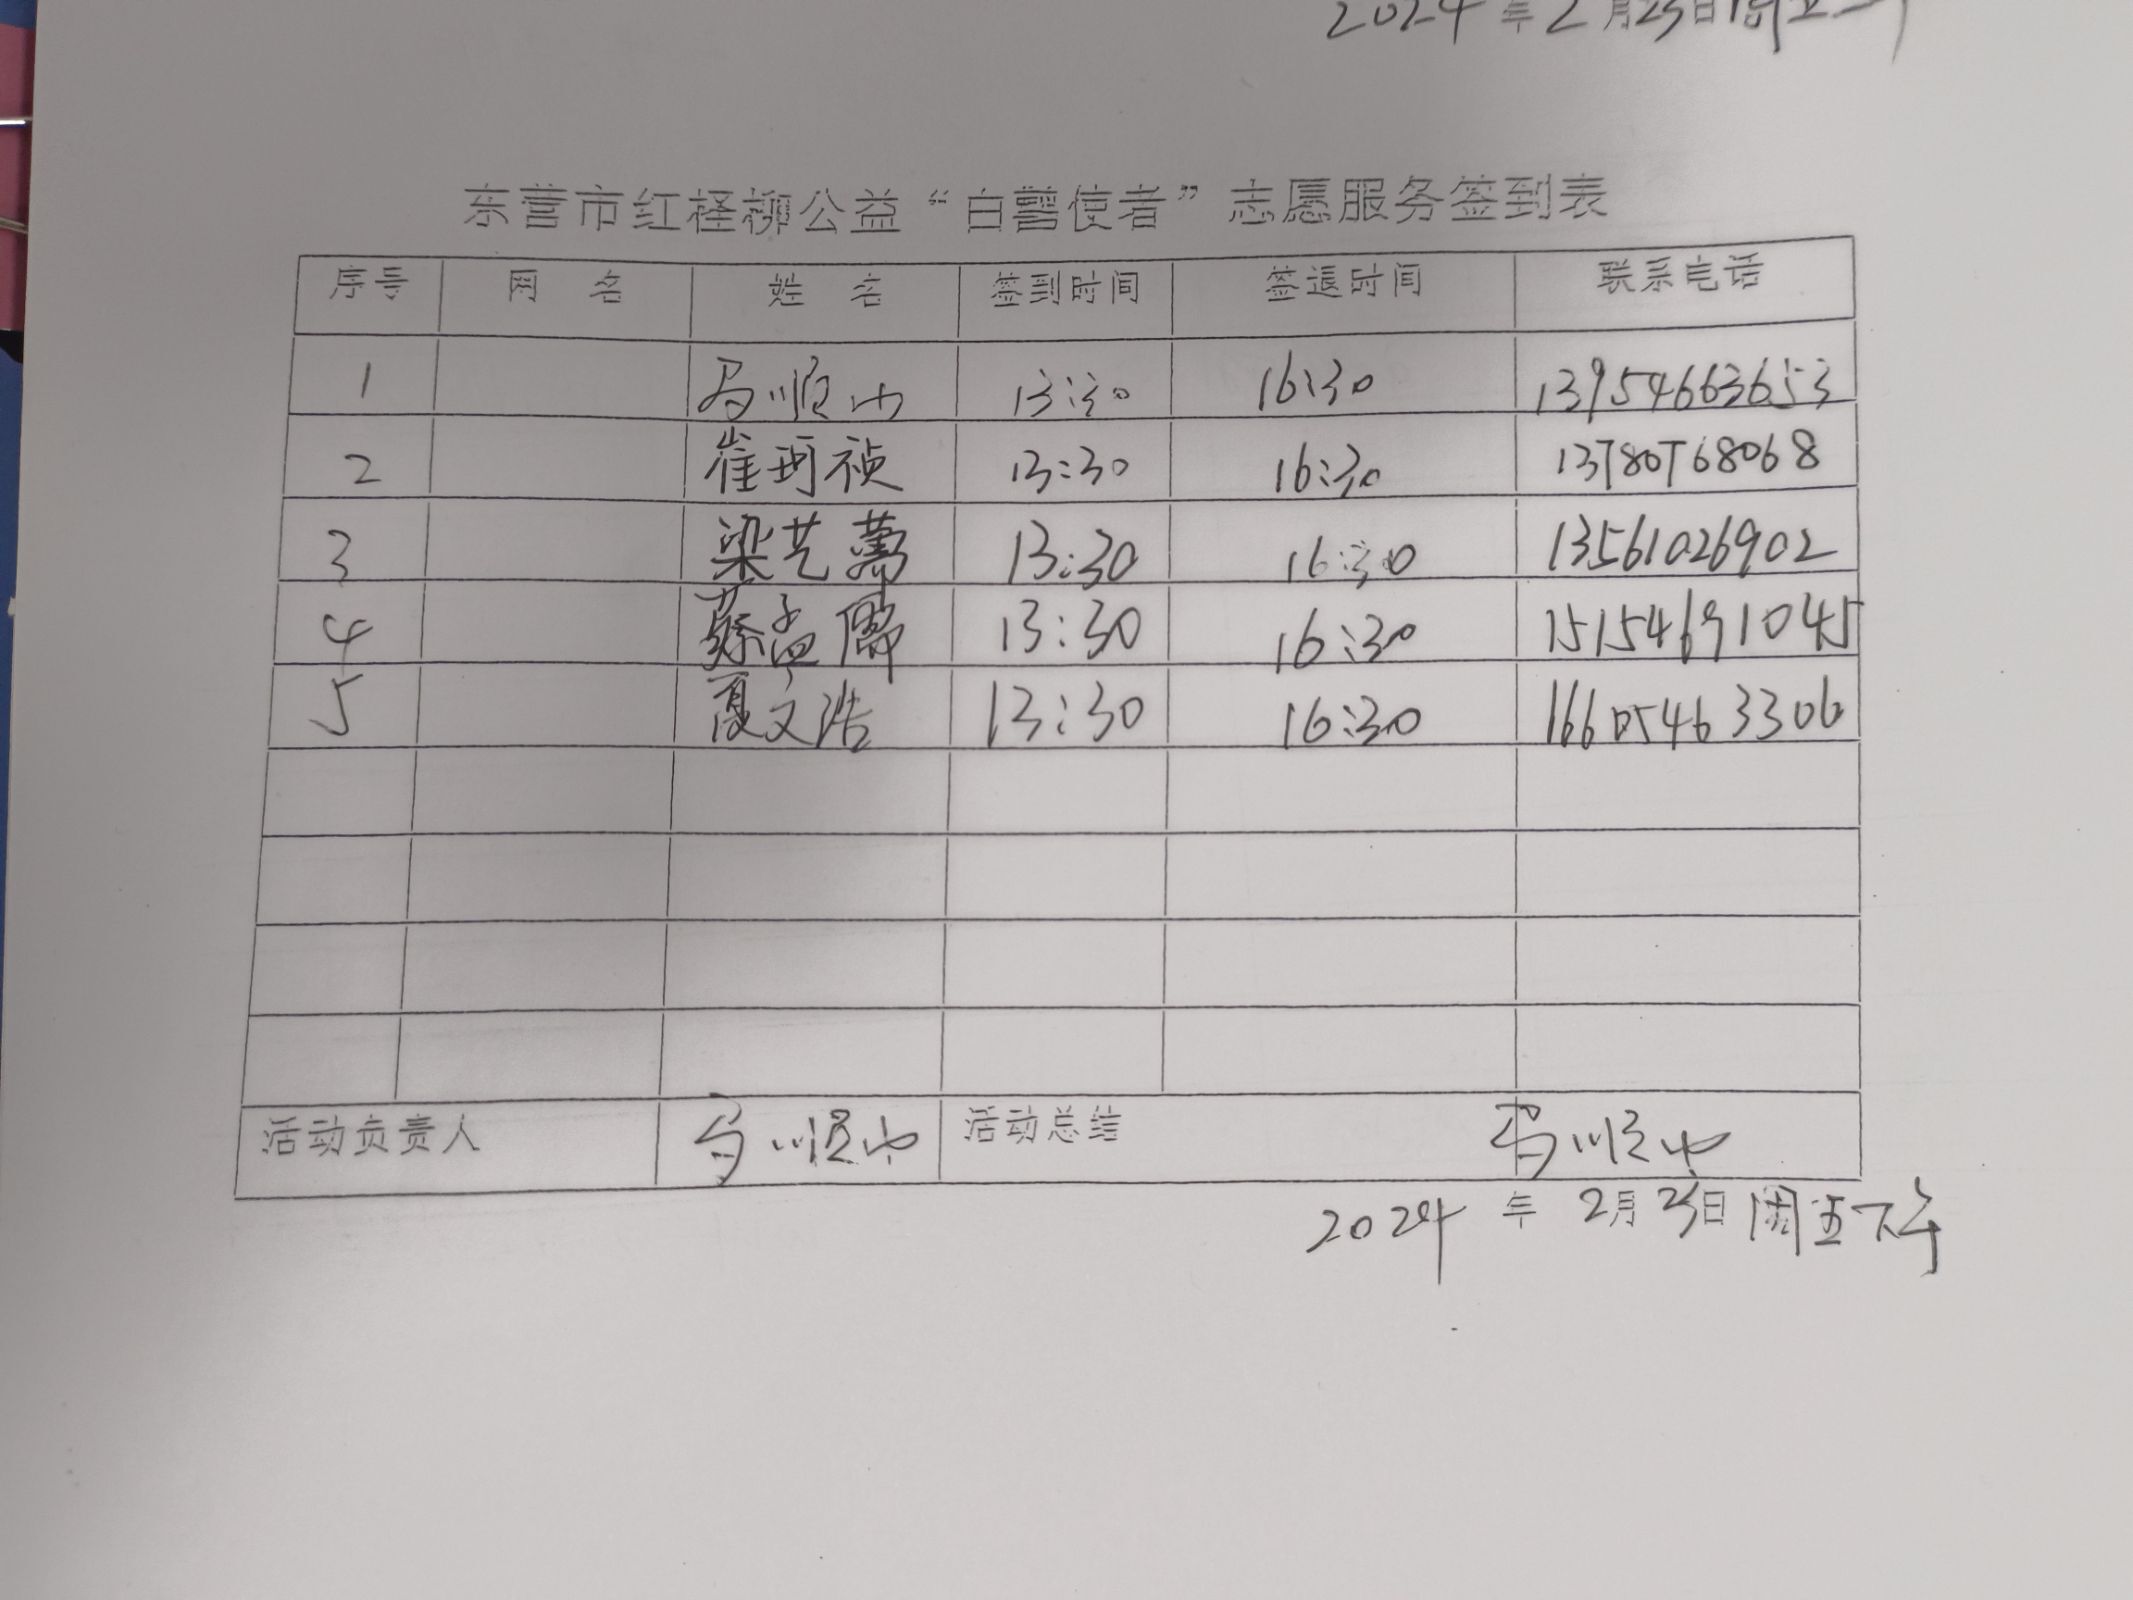 2024年2月23日周五上午
东营市红柽柳公益“白警使者”志愿服务签到表
序号 网名 姓名 签到时间 签退时间 联系电话
1 马顺山 13:30 16:30 13954663653
2 崔珂祯 13:30 16:30 13780768068
3 梁艺菁 13:30 16:30 13561026902
4 蔡孟儒 13:30 16:30 15154691045
5 夏文浩 13:30 16:30 16605463306
活动负责人 马顺山 活动总结 马顺山
2024年2月23日周五下午